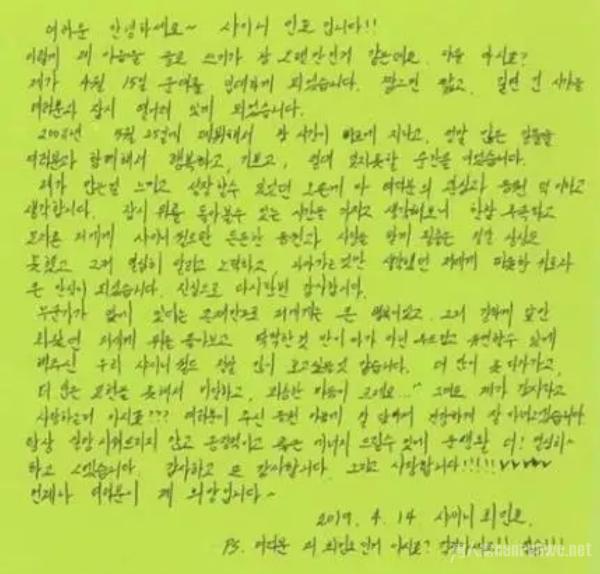 여러분 안녕하세요~ 샤이니 민호입니다!!
이렇게 제 마음을 글로 쓰기가 참 오랜만인거 같은데요. 다들 아시죠?
제가 4월 15일 군대를 입대하게 되었습니다. 짧으면 짧고, 길면 긴 시간을
여러분과 잠시 떨어져 있게 되었습니다.
2008년 5월 25일에 데뷔해서 참 시간이 빠르게 지나고, 정말 많은 일들을
여러분과 함께해서 행복하고, 기쁘고, 절대 잊지못할 순간들 이었습니다.
제가 많은걸 느끼고 성장할수 있었던 오른게 다 여러분의 관심과 응원 덕이라고
생각합니다. 잠시 뒤를 돌아볼수 있는 시간을 가지고 생각해보니 한참 부족하고
모자른 저에게 샤이니 월드란 든든한 응원과 사랑을 받게 될줄은 정말 상상도
못했고 그저 열심히 달리고 노력하고, 나아가는것만 생각했던 저에게 따뜻한 위로와
큰 안심이 되었습니다. 진심으로 다시한번 감사합니다.
누군가 같이 있다는 존재만으로 저에게는 큰 행복이었고, 그저 강하게 앞만
보았던 저에게 뒤를 돌아보고 딱딱한것 만이 아닌 부드럽고 유연할수 있게
해주신 우리 샤이니 월드 정말 많이 보고싶을것 같습니다. 더 많이 못 다가가고,
더 많은 표현을 못해서 미안하고, 죄송한 마음이 크네요..." 그래도 제가 감사하고
사랑하는거 아시죠??? 여러분이 주신 응원 마음에 잘 담아서 건강하게 잘 다녀오겠습니다
항상 실망 시켜드리지 않고 응원하고 픔은 에너지 드릴수 있게 군생활 더! 열심히~
하고 오겠습니다. 감사하고 또 감사합니다. 그리고 사랑합니다!!!!!
언제나 여러분이 제 희망입니다~
2019. 4. 14 샤이니 최민호.
PS. 여러분 제 최민호인거 아시죠?